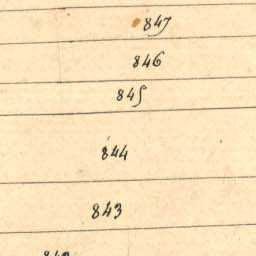 847
846
845
844
843